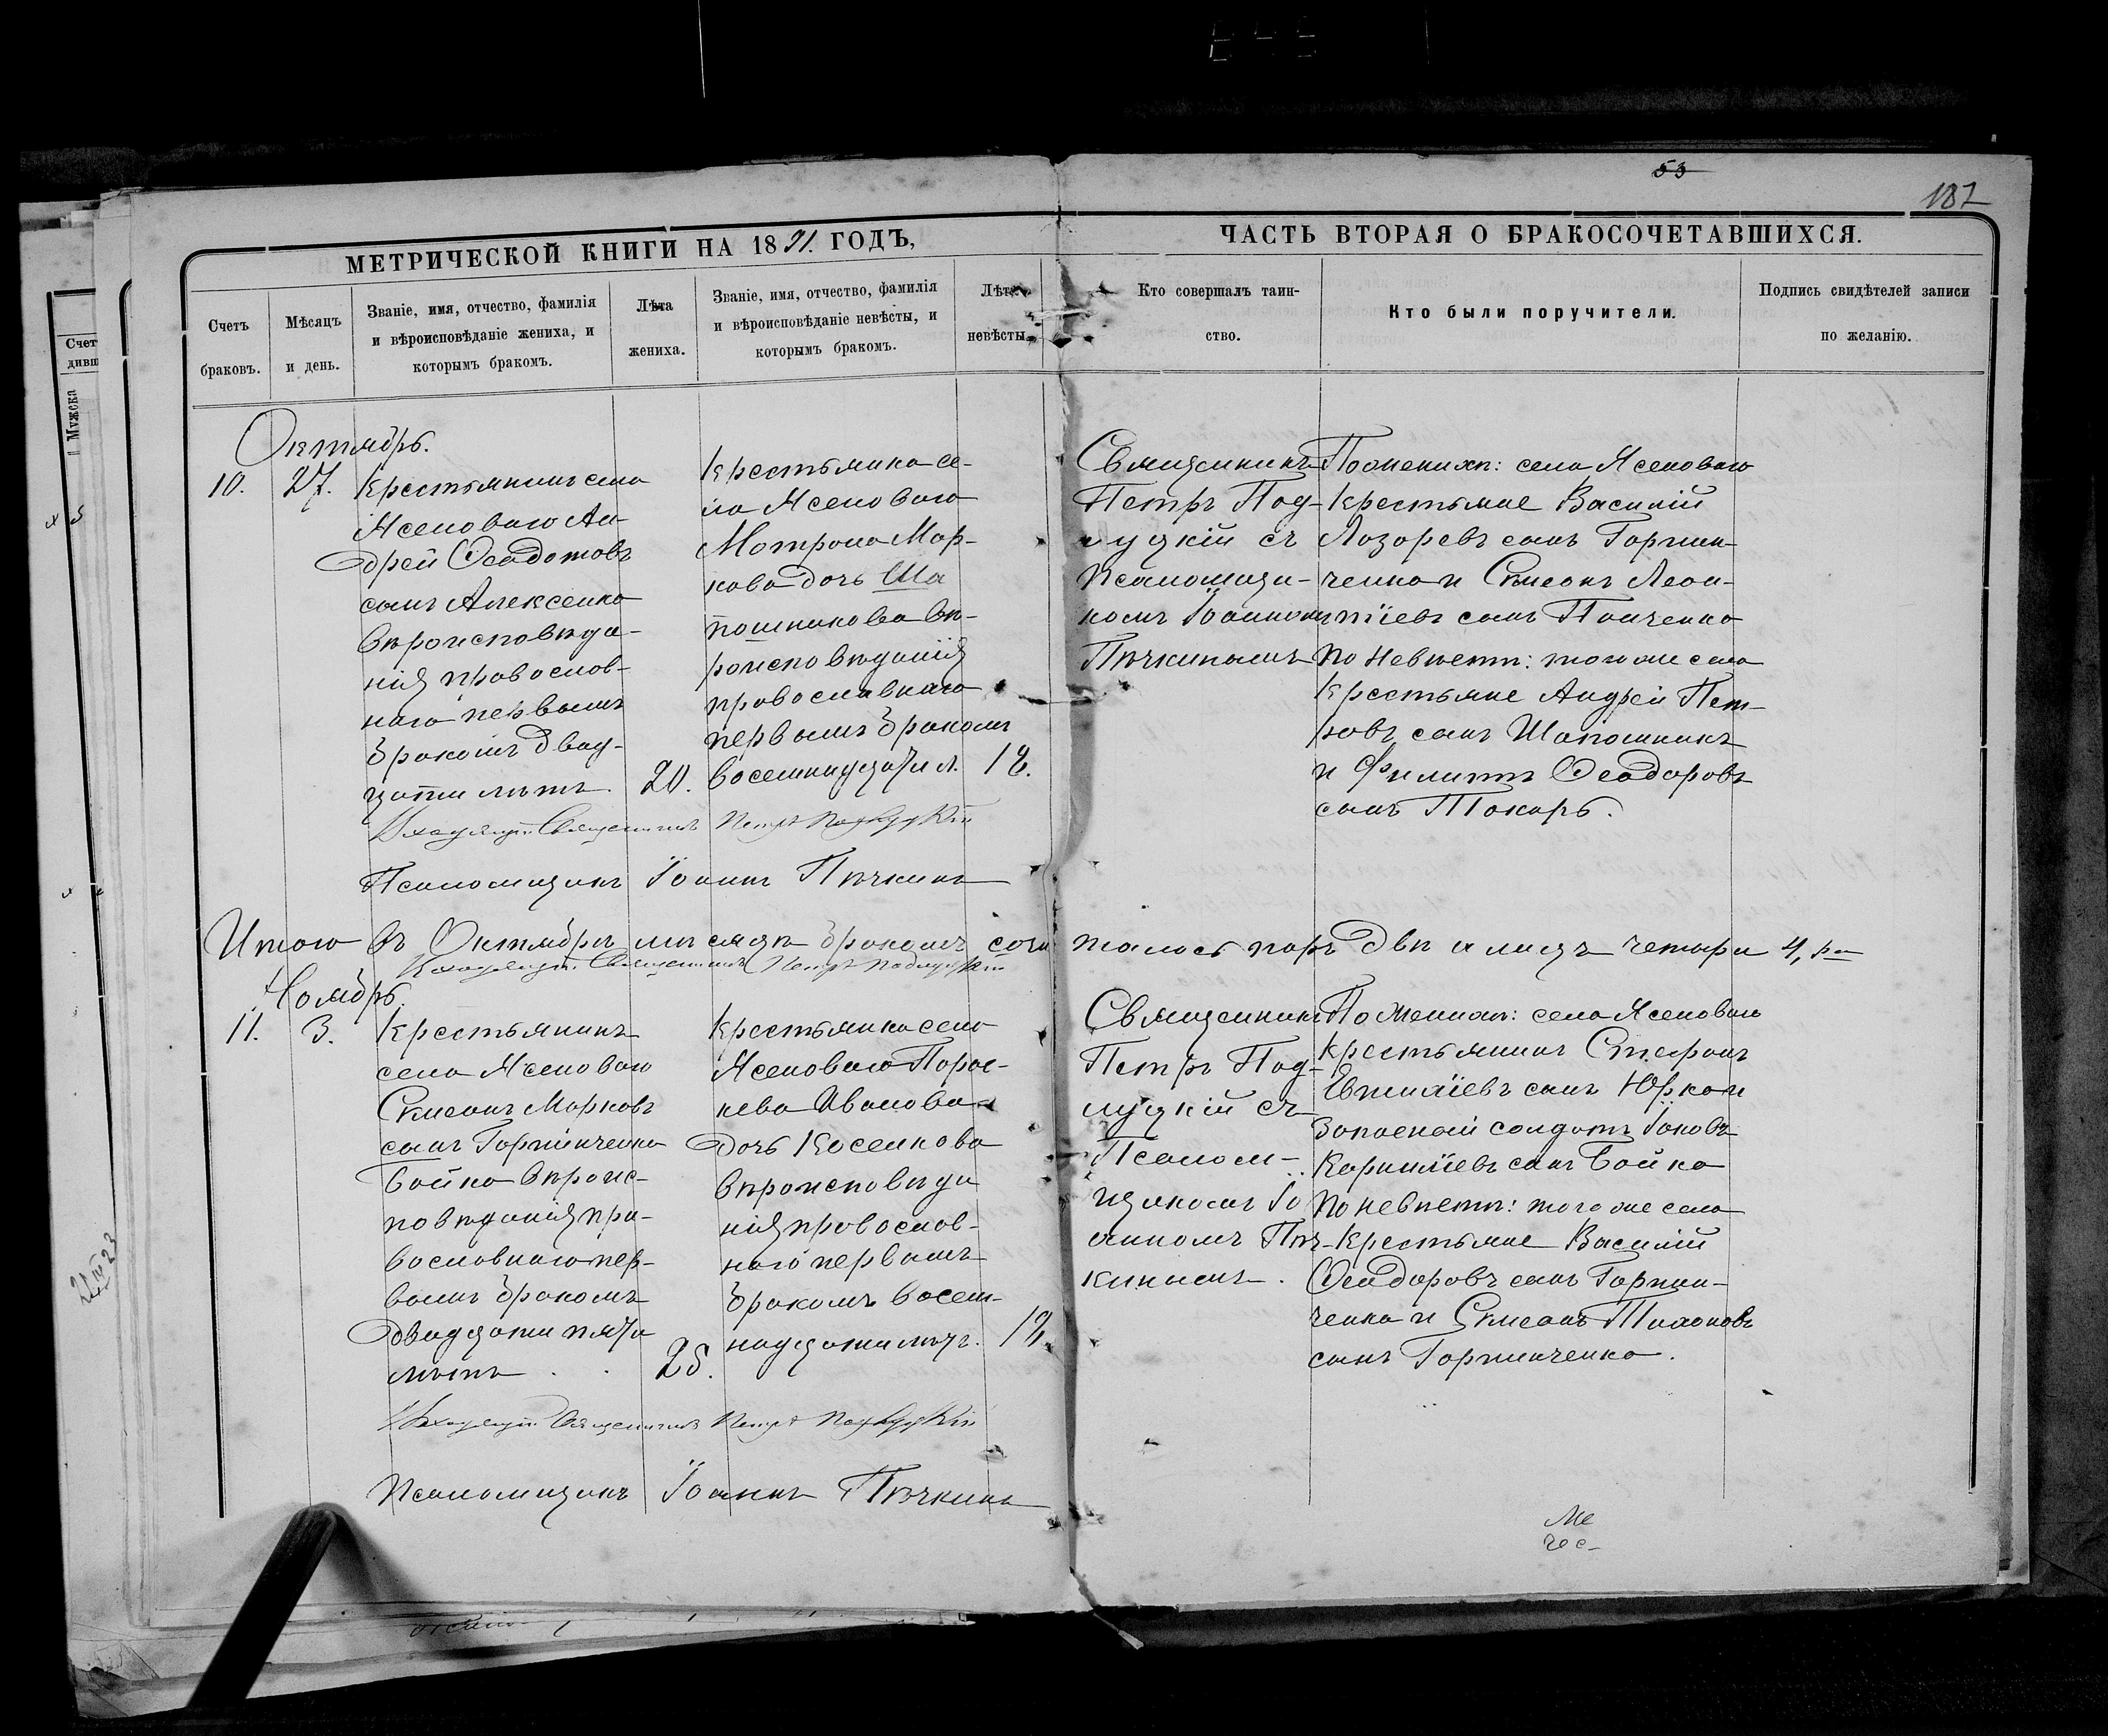 53
187
МЕТРИЧЕСКОЙ КНИГИ НА 1891. ГОДЪ,
Счетъ
браковъ.
Мѣсяцъ
и день.
Званіе, имя, отчество, фамилія
и вѣроисповѣданіе жениха, и
которымъ бракомъ.
Лѣта
жениха.
Званіе, имя, отчество, фамилія
и вѣроисповѣданіе невѣсты, и
которымъ бракомъ.
Лѣта
невѣсты.
ЧАСТЬ ВТОРАЯ О БРАКОСОЧЕТАВШИХСЯ.
Кто совершалъ таин-
ство.
Кто были поручители.
Подпись свидѣтелей записи
по желанію.
Октябрь.
10.
27.
Крестьянинъ села
Ясеноваго Ан-
дрей Ѳеодотовъ
сынъ Алексенко
вѣроисповѣда-
нія православ-
наго первымъ
бракомъ двад-
цати лѣтъ.
20.
Крестьянка се-
ла Ясеноваго
Мотрона Мар-
кова дочь Ша
пошникова вѣ-
роисповѣданія
православнаго
первымъ бракомъ
восемнадцати л.
18.
Священникъ
Петръ Под-
луцкій съ
Псаломщи-
комъ Іоанномъ
Пѣчкинымъ
По женихѣ: села Ясеноваго
Крестьяне Василій
Лазаревъ сынъ Горпин-
ченко и Симеонъ Леон-
тіевъ сынъ Панченко
По Невѣстѣ: того же села
Крестьяне Андрей Пет-
ровъ сынъ Шапошникъ
и Филиппъ Ѳеодоровъ
сынъ Токарь.
Священникъ Петръ Подлуцкій
Псаломщикъ Іоаннъ Пѣчкинъ
Итого въ Октябрѣ мѣсяцѣ бракомъ соче талось паръ двѣ а лицъ четыри 4,
Священникъ Петръ Подлуцкій
Ноябрь.
11.
3.
Крестьянинъ
села Ясеноваго
Симеонъ Марковъ
сынъ Горпинченко
Бойко вѣроис-
повѣданія пра-
вославнаго пер-
вымъ бракомъ
двадцати пяти
лѣтъ . .
25.
Крестьянка села
Ясеноваго Парас-
кева Иванова
дочь Косенкова
вѣроисповѣда
нія православ-
наго первымъ
бракомъ восем-
надцати лѣтъ.
18.
Священникъ
Петръ Под-
луцкій съ
Псалом-
щикомъ Іо
анномъ Пѣч-
кинымъ.
По Женихѣ: села Ясеноваго
Крестьянинъ Стефанъ
сынъ Юрко и
Запасный солдатъ Іаковъ
Корниліевъ сынъ Бойко
По невѣстѣ: того же села
Крестьяне Василій
Ѳеодоровъ сынъ Горпин-
ченко и Симеонъ Тихоновъ
сынъ Горпинченко.
Священникъ Петръ Подлуцкій
Псаломщикъ Іоаннъ Пѣчкинъ
Счет
дивш
Мужска